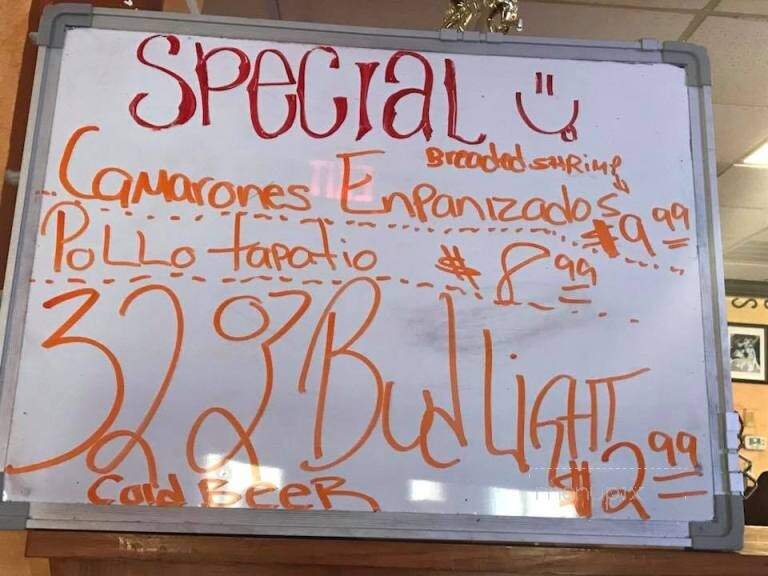 SPECIAL
Breaded SHRIMP
Camarones Enpanizados $9.99
Pollo tapatio $8.99
32 oz Bud LiGHT $2.99
Cold BEER
menupix